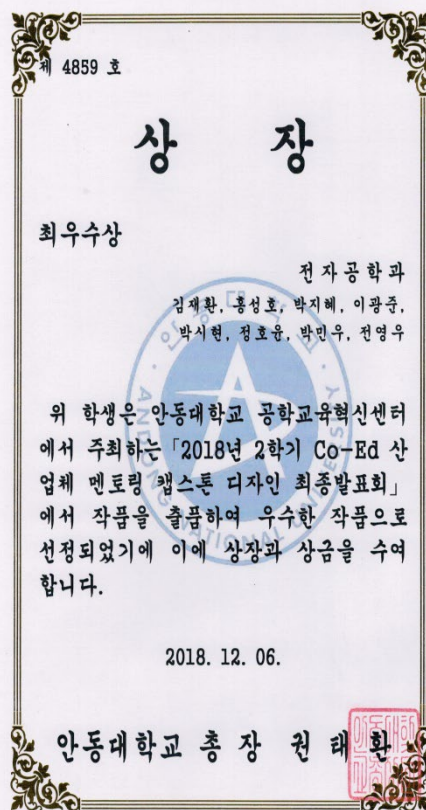 제 4859 호
상 장
최우수상
전자공학과
김재환, 홍성호, 박지혜, 이광준,
박시현, 정호윤, 박민우, 전영우
위 학생은 안동대학교 공학교육혁신센터
에서 주최하는 「2018년 2학기 Co-Ed 산
업체 멘토링 캡스톤 디자인 최종발표회」
에서 작품을 출품하여 우수한 작품으로
선정되었기에 이에 상장과 상금을 수여
합니다.
2018. 12. 06.
안동대학교 총 장 권 태 환
안동대학교
ANDONG NATIONAL UNIVERSITY